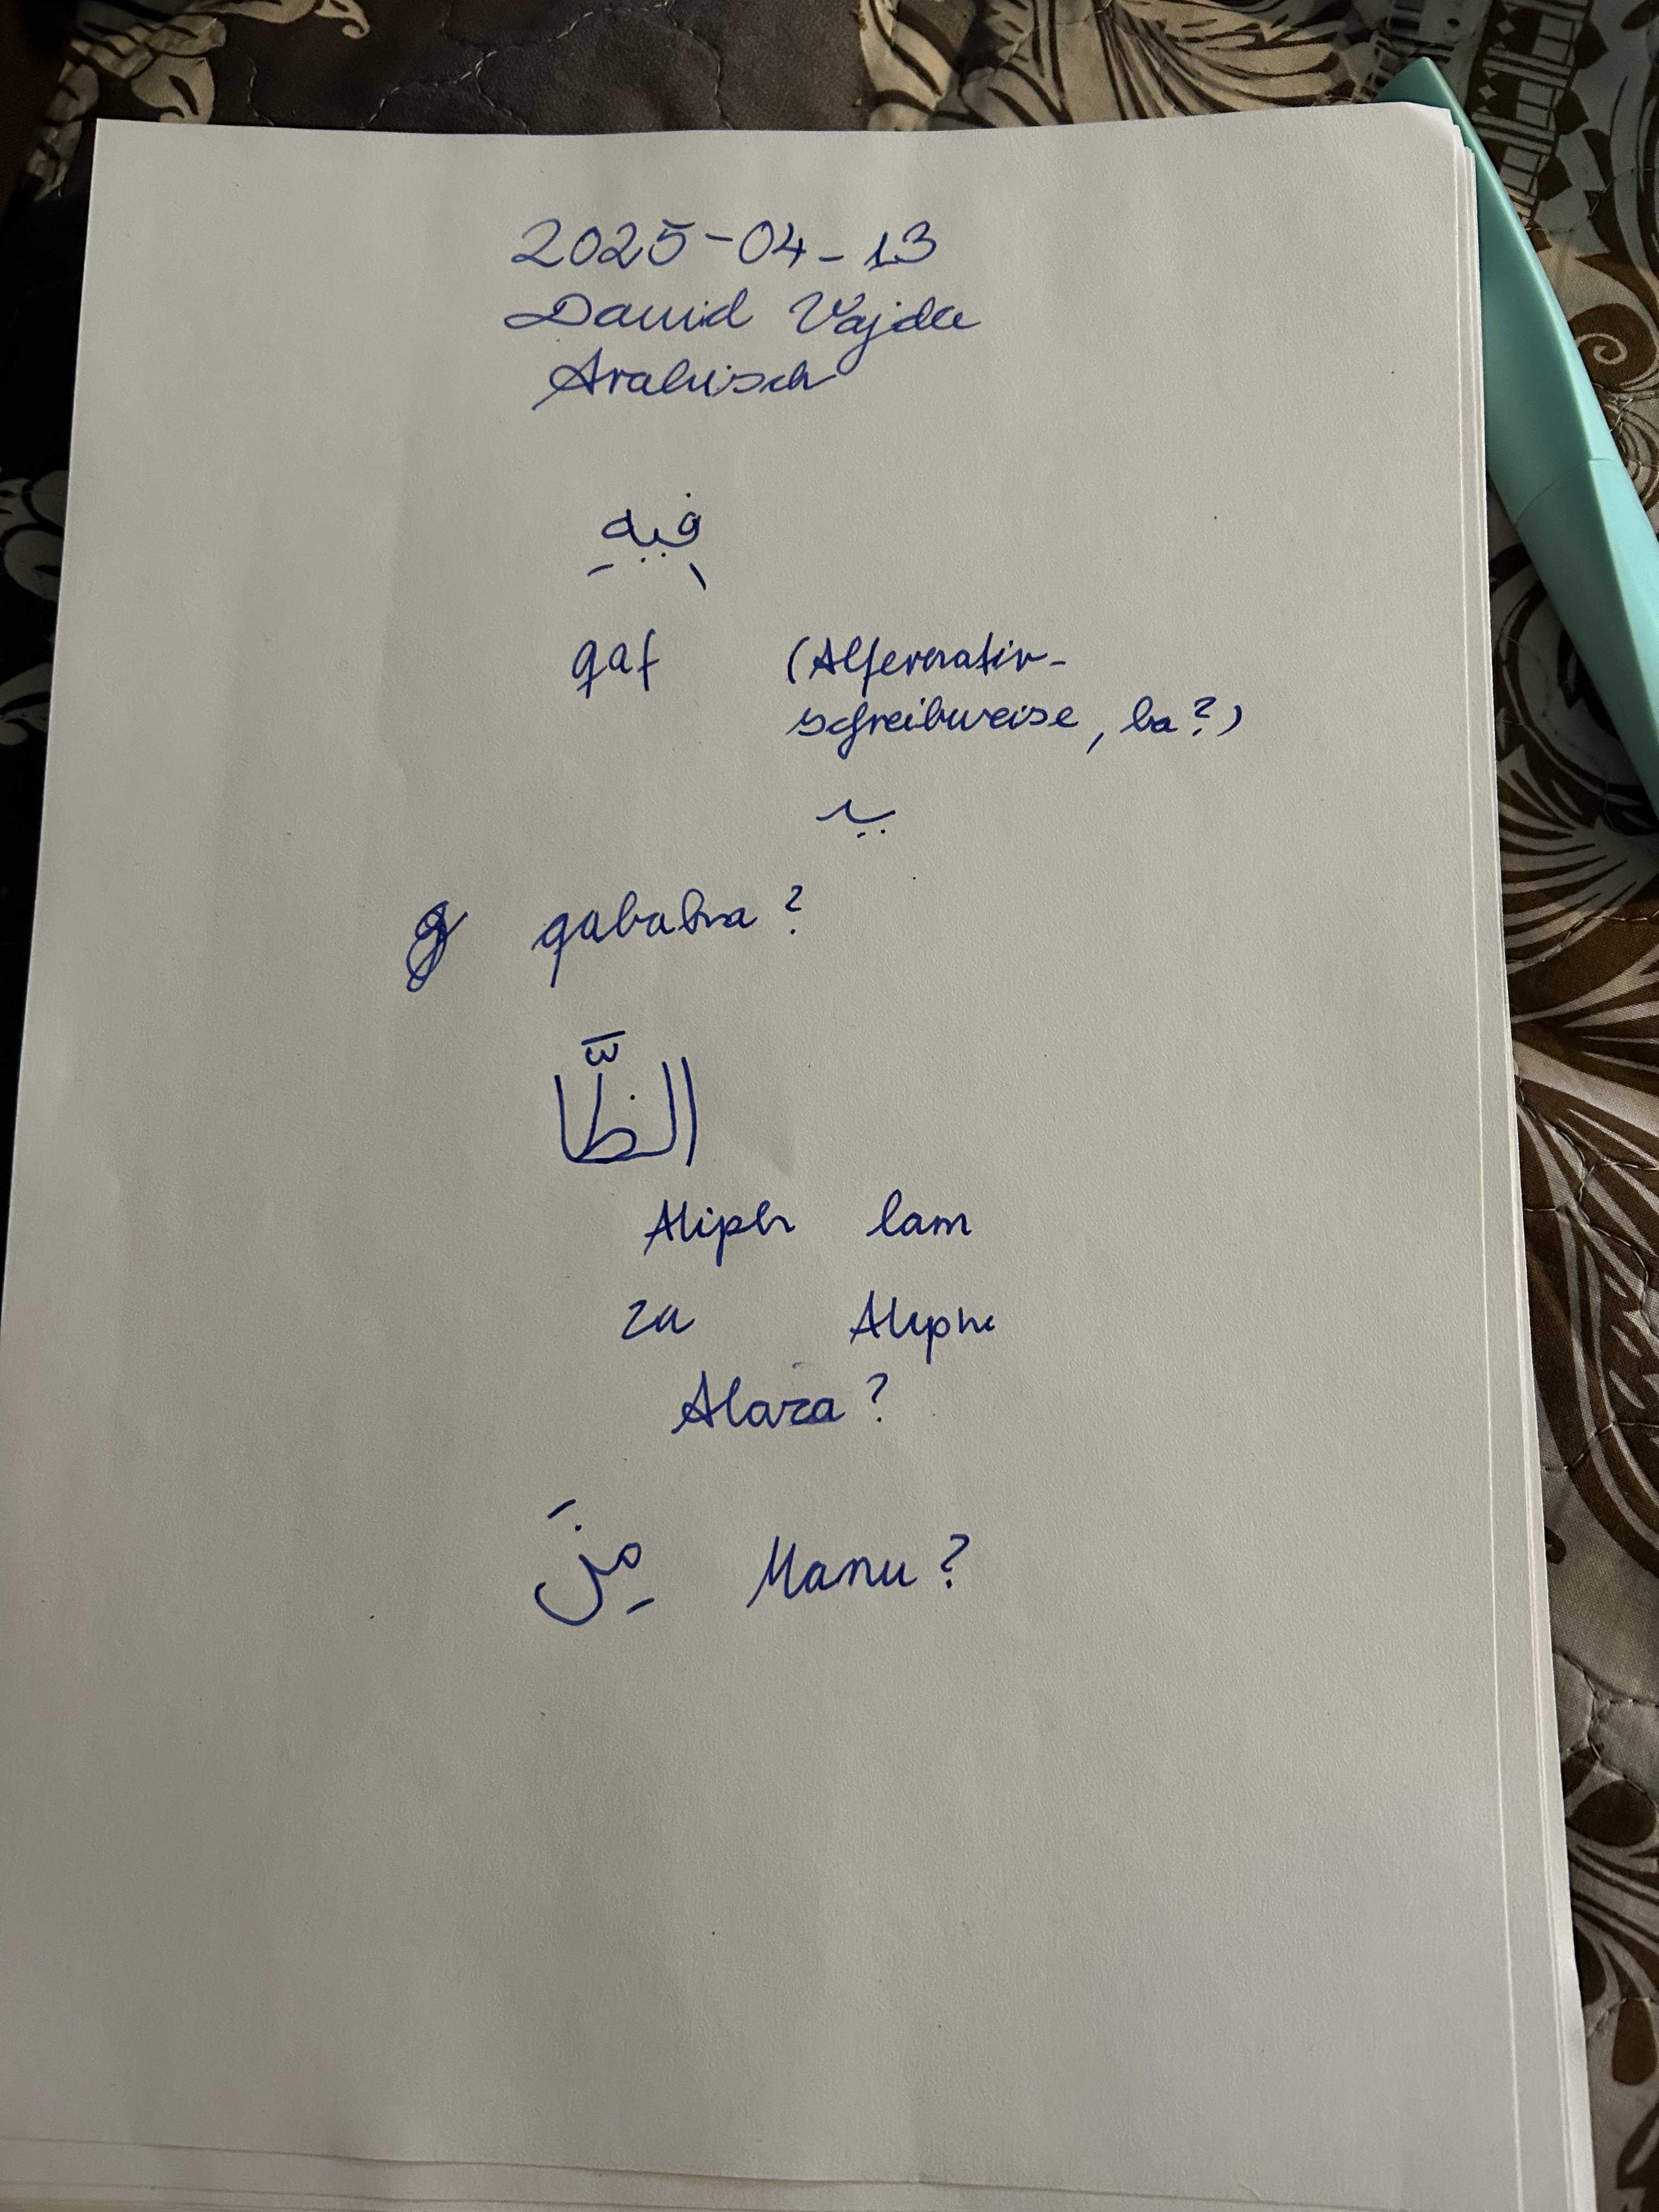 2025-04-13
David Vajda
Arabisch
فِيهِ
qaf (Alternativ-
schreibweise, ba?)
يـ
qababa?
الظَّا
Aliph lam
za Aliph
Alaza?
مِنَ Manu?